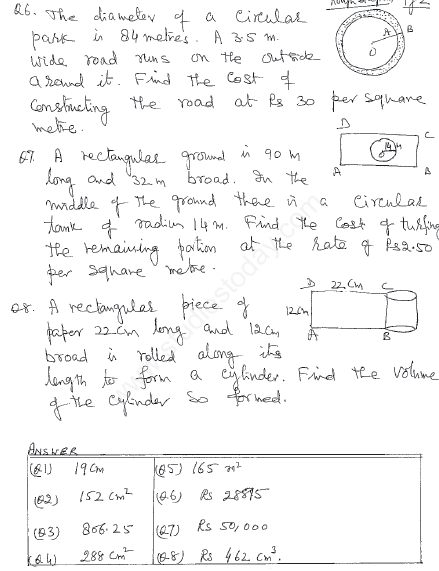 Q6. The diameter of a circular
park is 84 metres. A 3.5 m.
wide road runs on the outside
around it. Find the cost of
constructing the road at Rs 30 per square
metre.
A B
O
Q7. A rectangular ground is 90 m
long and 32 m broad. In the
middle of the ground there is a circular
tank of radius 14 m. Find the cost of turfing
the remaining portion at the rate of Rs 2.50
per square metre.
D C
14 m
A B
Q8. A rectangular piece of
paper 22 cm long and 12 cm
broad is rolled along its
length to form a cylinder. Find the volume
of the cylinder so formed.
D 22 cm C
12 cm
A B
ANSWER
(Q1) 19 cm (Q5) 165 m²
(Q2) 152 cm² (Q6) Rs 28875
(Q3) 866.25 (Q7) Rs 50,000
(Q4) 288 cm² (Q8) Rs 462 cm³.